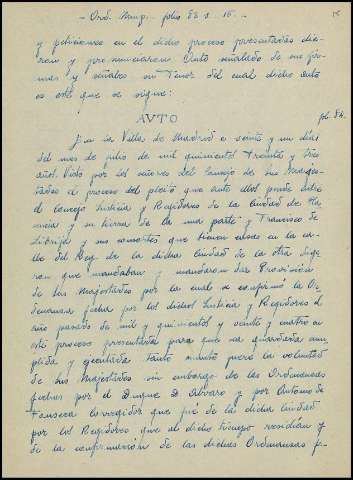 - Ord. Munp. folio 83 a 15. -
15
y peticiones en el dicho proceso presentadas die-
ron y pronunciaron Auto señalado de sus fir-
mas y señales su Tenor del cual dicho auto
es este que se sigue:
AVTO
fol 84.
En la Villa de Madrid a veinte y un dias
del mes de julio de mil quinientos treinta y tres
años. Visto por los señores del Consejo de sus Majes-
tades el proceso del pleito que ante ellos pende entre
el Concejo Justicia y Regidores de la Ciudad de
y su tierra de la una parte y Francisco de
Librija y sus consortes que tienen casas en la ca-
lle del Rey de la dicha Ciudad de la otra dije-
ron que mandaban y mandaron dar Provisión
de Sus Majestades por la cual se confirmó la Or-
denanza fecha por los dichos Justicia y Regidores el
año pasado de mil y quinientos y veinte y cuatro en
este proceso presentada para que sea guardada cum-
plida y ejecutada tanto cuanto fuere la voluntad
de Sus Majestades sin embargo de las Ordenanzas
fechas por el Duque D. Alvaro y por Antonio de
Fonseca corregidor que fué de la dicha ciudad
por los Regidores que al dicho tiempo residian y
de la confirmación de las dichas Ordenanzas f-